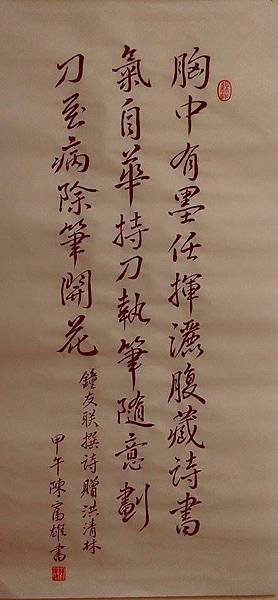 胸中有墨任揮灑腹藏詩書
氣自華持刀執筆隨意劃
刀至病除筆開花
鐘友联撰詩贈洪清林
甲午陳富雄書